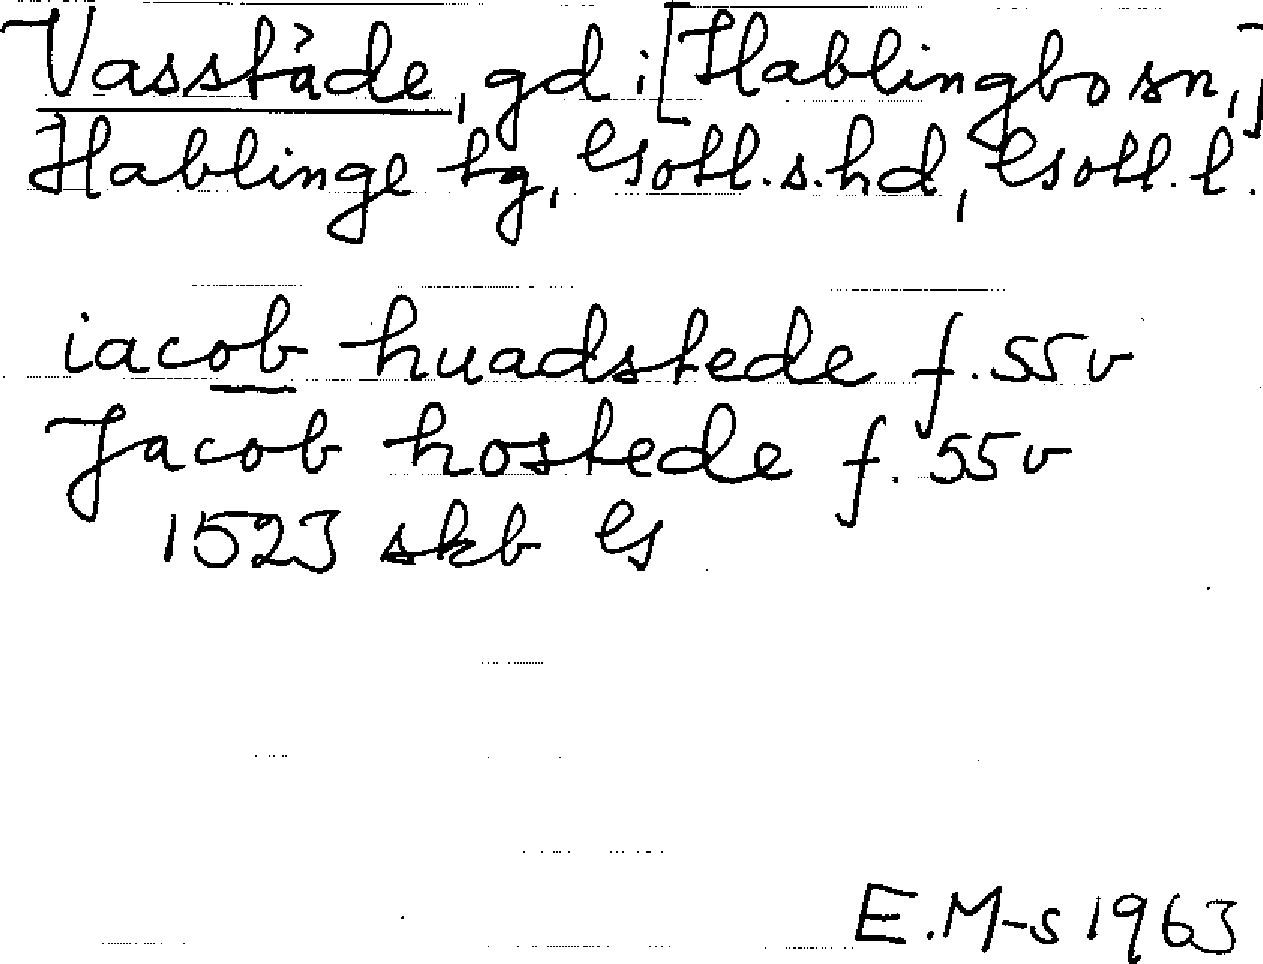 Vasståde, gd i [Hablingbo sn,]
Hablinge tg, Gotl.s.hd, Gotl.l.
iacob huadstede f.55v
Jacob hostede f.55v
1523 skb G
E.M-s 1963